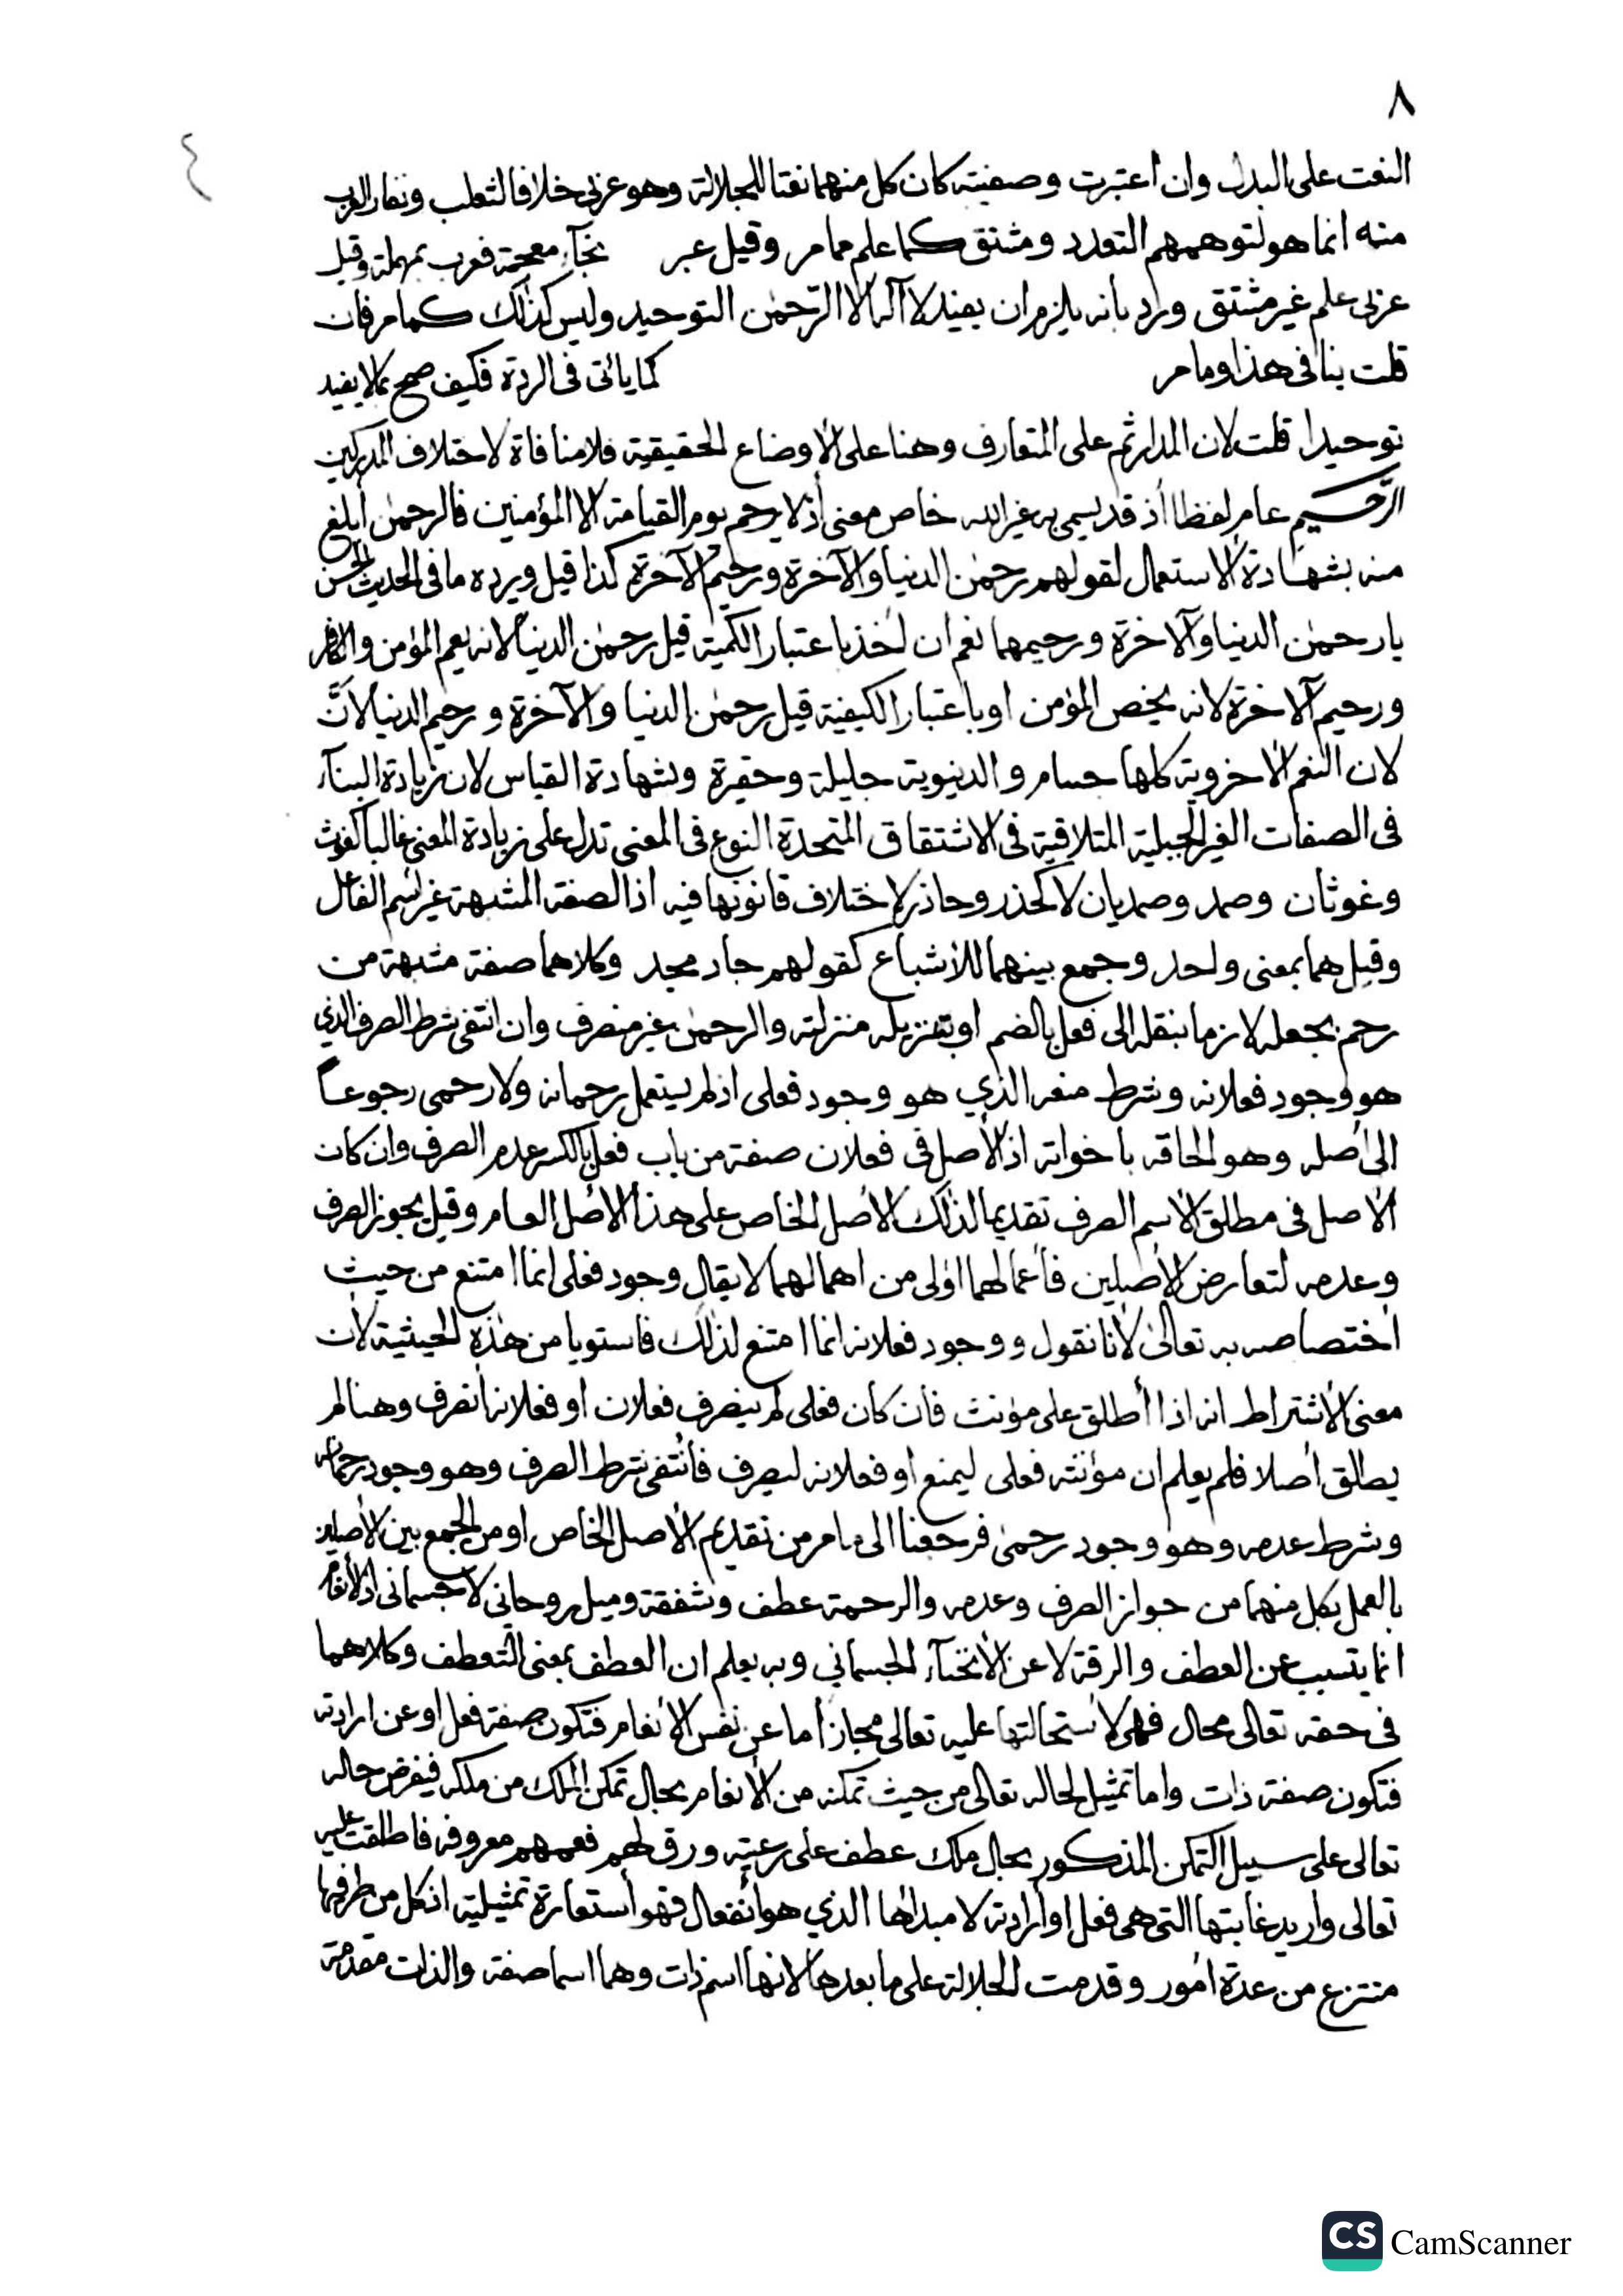 ٨
٤
النعت على البدل وان اعتبرت وصفيته كان كل منهما نعتا للجلالة وهو عربي خلافا لثعلب ونفار العرب
منه انما هو لتوهمهم التعدد ومشتق كما علم مما مر وقيل عبر بخآء معجمة فعرب بمهملة وقيل
عربي علم غير مشتق ورد بانه يلزم ان يفيد لا آله الا الرّحمٰن التوحيد وليس كذلك كما مر فان
قلت ينافى هذا وما مر كما يأتى فى الردة فكيف صح بما لا يفيد
توحيدا قلت لان المدار ثم على المتعارف وهنا على الاوضاع الحقيقية فلا منافاة لاختلاف المدركين
الرّحيم عام لفظا اذ قد يسمى به غير الله خاص معنى اذ لا يرحم يوم القيامة الا المؤمنين فالرحمٰن ابلغ
منه بشهادة الاستعمال لقولهم رحمٰن الدنيا والآخرة ورحيم الآخرة كذا قيل ويرده ما فى الحديث الحسن
يارحمٰن الدنيا والآخرة ورحيمهما نعم ان اخذ باعتبار الكمية قيل رحمٰن الدنيا لانه يعم المؤمن والكافر
ورحيم الآخرة لانه يخص المؤمن او باعتبار الكيفية قيل رحمٰن الدنيا والآخرة ورحيم الدنيا لانّ
لان النعم الاخروية كلها جسام والدنيوية جليلة وحقيرة وبشهادة القياس لان زيادة البنآء
فى الصفات الغير الجبلية المتلاقية فى الاشتقاق المتحدة النوع فى المعنى تدل على زيادة المعنى غالبا كغوث
وغوثان وصد وصديان لا كحذر وحاذر لاختلاف قانونها فيه اذ الصفة المشبهة غير اسم الفاعل
وقيل هما بمعنى واحد وجمع بينهما للاشباع كقولهم جاد مجد وكلاهما صفة مشبهة من
رحم بجعله لازما بنقله الى فعل بالضم او بتنزيله منزلته والرحمٰن غير منصرف وان انتفى شرط الصرف الذي
هو وجود فعلانه وشرط منعه الذي هو وجود فعلى اذ لم يستعمل رحمانه ولا رحمى رجوعاً
الى اصله وهو الحاقه باخواته اذ الاصل فى فعلان صفة من باب فعل بالكسر عدم الصرف وان كان
الاصل فى مطلق الاسم الصرف تقديما لذلك الاصل الخاص على هذا الاصل العام وقيل يجوز الصرف
وعدمه لتعارض الاصلين فاعمالهما اولى من اهمالهما لا يقال وجود فعلى انما امتنع من حيث
اختصاصه به تعالىٰ لانا نقول ووجود فعلانه انما امتنع لذلك فاستويا من هٰذه الحيثية لان
معنى الاشتراط انه اذا أطلق على مؤنث فان كان فعلى لم ينصرف فعلان او فعلانة انصرف وهنا لم
يطلق اصلا فلم يعلم ان مؤنثه فعلى ليمنع او فعلانه ليصرف فانتفى شرط الصرف وهو وجود رحمانه
وشرط عدمه وهو وجود رحمىٰ فرجعنا الى ما مر من تقديم الاصل الخاص او من الجمع بين الاصلين
بالعمل بكل منهما من جواز الصرف وعدمه والرحمة عطف وشفقة وميل روحاني لا جسمانى اذ الانعام
انما يتسبب عن العطف والرقة لا عن الانحنآء الجسماني وبه يعلم ان العطف بمعنى التعطف وكلاهما
فى حقه تعالى محال فهى لاستحالتها عليه تعالى مجاز اما عن نفس الانعام فتكون صفة فعل او عن ارادته
فتكون صفة ذات واما تمثيل لحاله تعالى من حيث تمكنه من الانعام بحال تمكن الملك من ملكه فيفرض حاله
تعالى على سبيل التمكن المذكور بحال ملك عطف على رعيته ورق لهم فعمهم معروفه فاطلقت عليه
تعالى واريد غايتها التى هى فعل او ارادته لا مبداها الذي هو انفعال فهو استعارة تمثيلية اذ كل من طرفيها
منتزع من عدة امور وقدمت الجلالة على ما بعدها لانها اسم ذات وهما اسما صفة والذات مقدمة
CS CamScanner